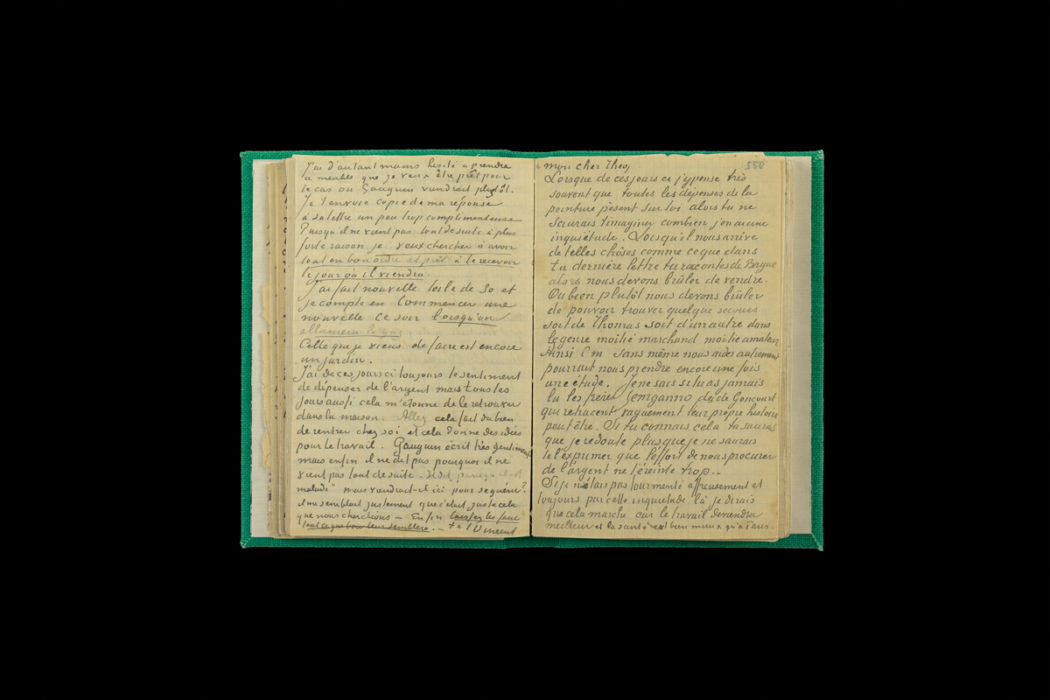 J'ai d'autant moins hésité à prendre
ce meubles que je veux être prêt pour
le cas ou Gauguin viendrait plus tôt.
Je t'envoie copie de ma réponse
à sa lettre un peu trop complimenteuse
Puisqu'il ne vient pas tout de suite à plus
forte raison je veux chercher à avoir
tout en bon ordre et prêt à le recevoir
le jour où il viendra.
J'ai fait nouvelle toile de 30 et
je compte en commencer une
nouvelle ce soir lorsqu'on
allumera le gaz
Celle que je viens de faire est encore
un jardin.
J'ai de ces jours ci toujours le sentiment
de dépenser de l'argent mais tous les
jours aussi cela m'étonne de le retrouver
dans la maison. Allez cela fait du bien
de rentrer chez soi et cela donne des idées
pour le travail. Gauguin écrit très gentiment
mais enfin il ne dit pas pourquoi il ne
vient pas tout de suite. Il dit
malade" mais viendrait-il ici pour se guérir?
il me semblait justement que c'était juste cela
que nous cherchions — Enfin laissez les faire
tout ce que bon leur semblera. — t. à t. Vincent
mon cher Theo, 550
Lorsque de ces jours ce j'y pense très
souvent que toutes les dépenses de la
peinture pèsent sur toi alors tu ne
saurais t'imaginer combien j'en ai une
inquiétude. Lorsqu'il nous arrive
de telles choses comme ce que dans
ta dernière lettre tu racontes de Bague
alors nous devons brûler de vendre.
Ou bien plutôt nous devons brûler
de pouvoir trouver quelque secours
soit de Thomas soit d'un autre dans
le genre moitié marchand moitié amateur
Ainsi C m sans même nous aider autrement
pourrait nous prendre encore une fois
une étude. Je ne sais si tu as jamais
lu les frères Zemganno des de Goncourt
qui retracent vaguement leur propre histoire
peut être. Si tu connais cela tu sauras
que je redoute plus que je ne saurais
te l'exprimer que l'effort de nous procurer
de l'argent ne t'éreinte trop..
Si je n'étais pas tourmenté affreusement et
toujours par cette inquiétude là je dirais
que cela marche car le travail deviendra
meilleur et la santé est bien mieux qu'à Paris.